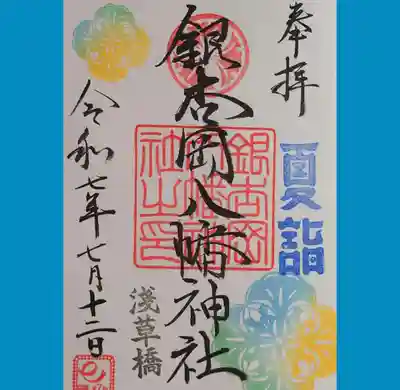 奉拝
夏詣
銀杏岡八幡神社
銀杏岡
八幡神
社之印
浅草橋
令和七年七月十二日